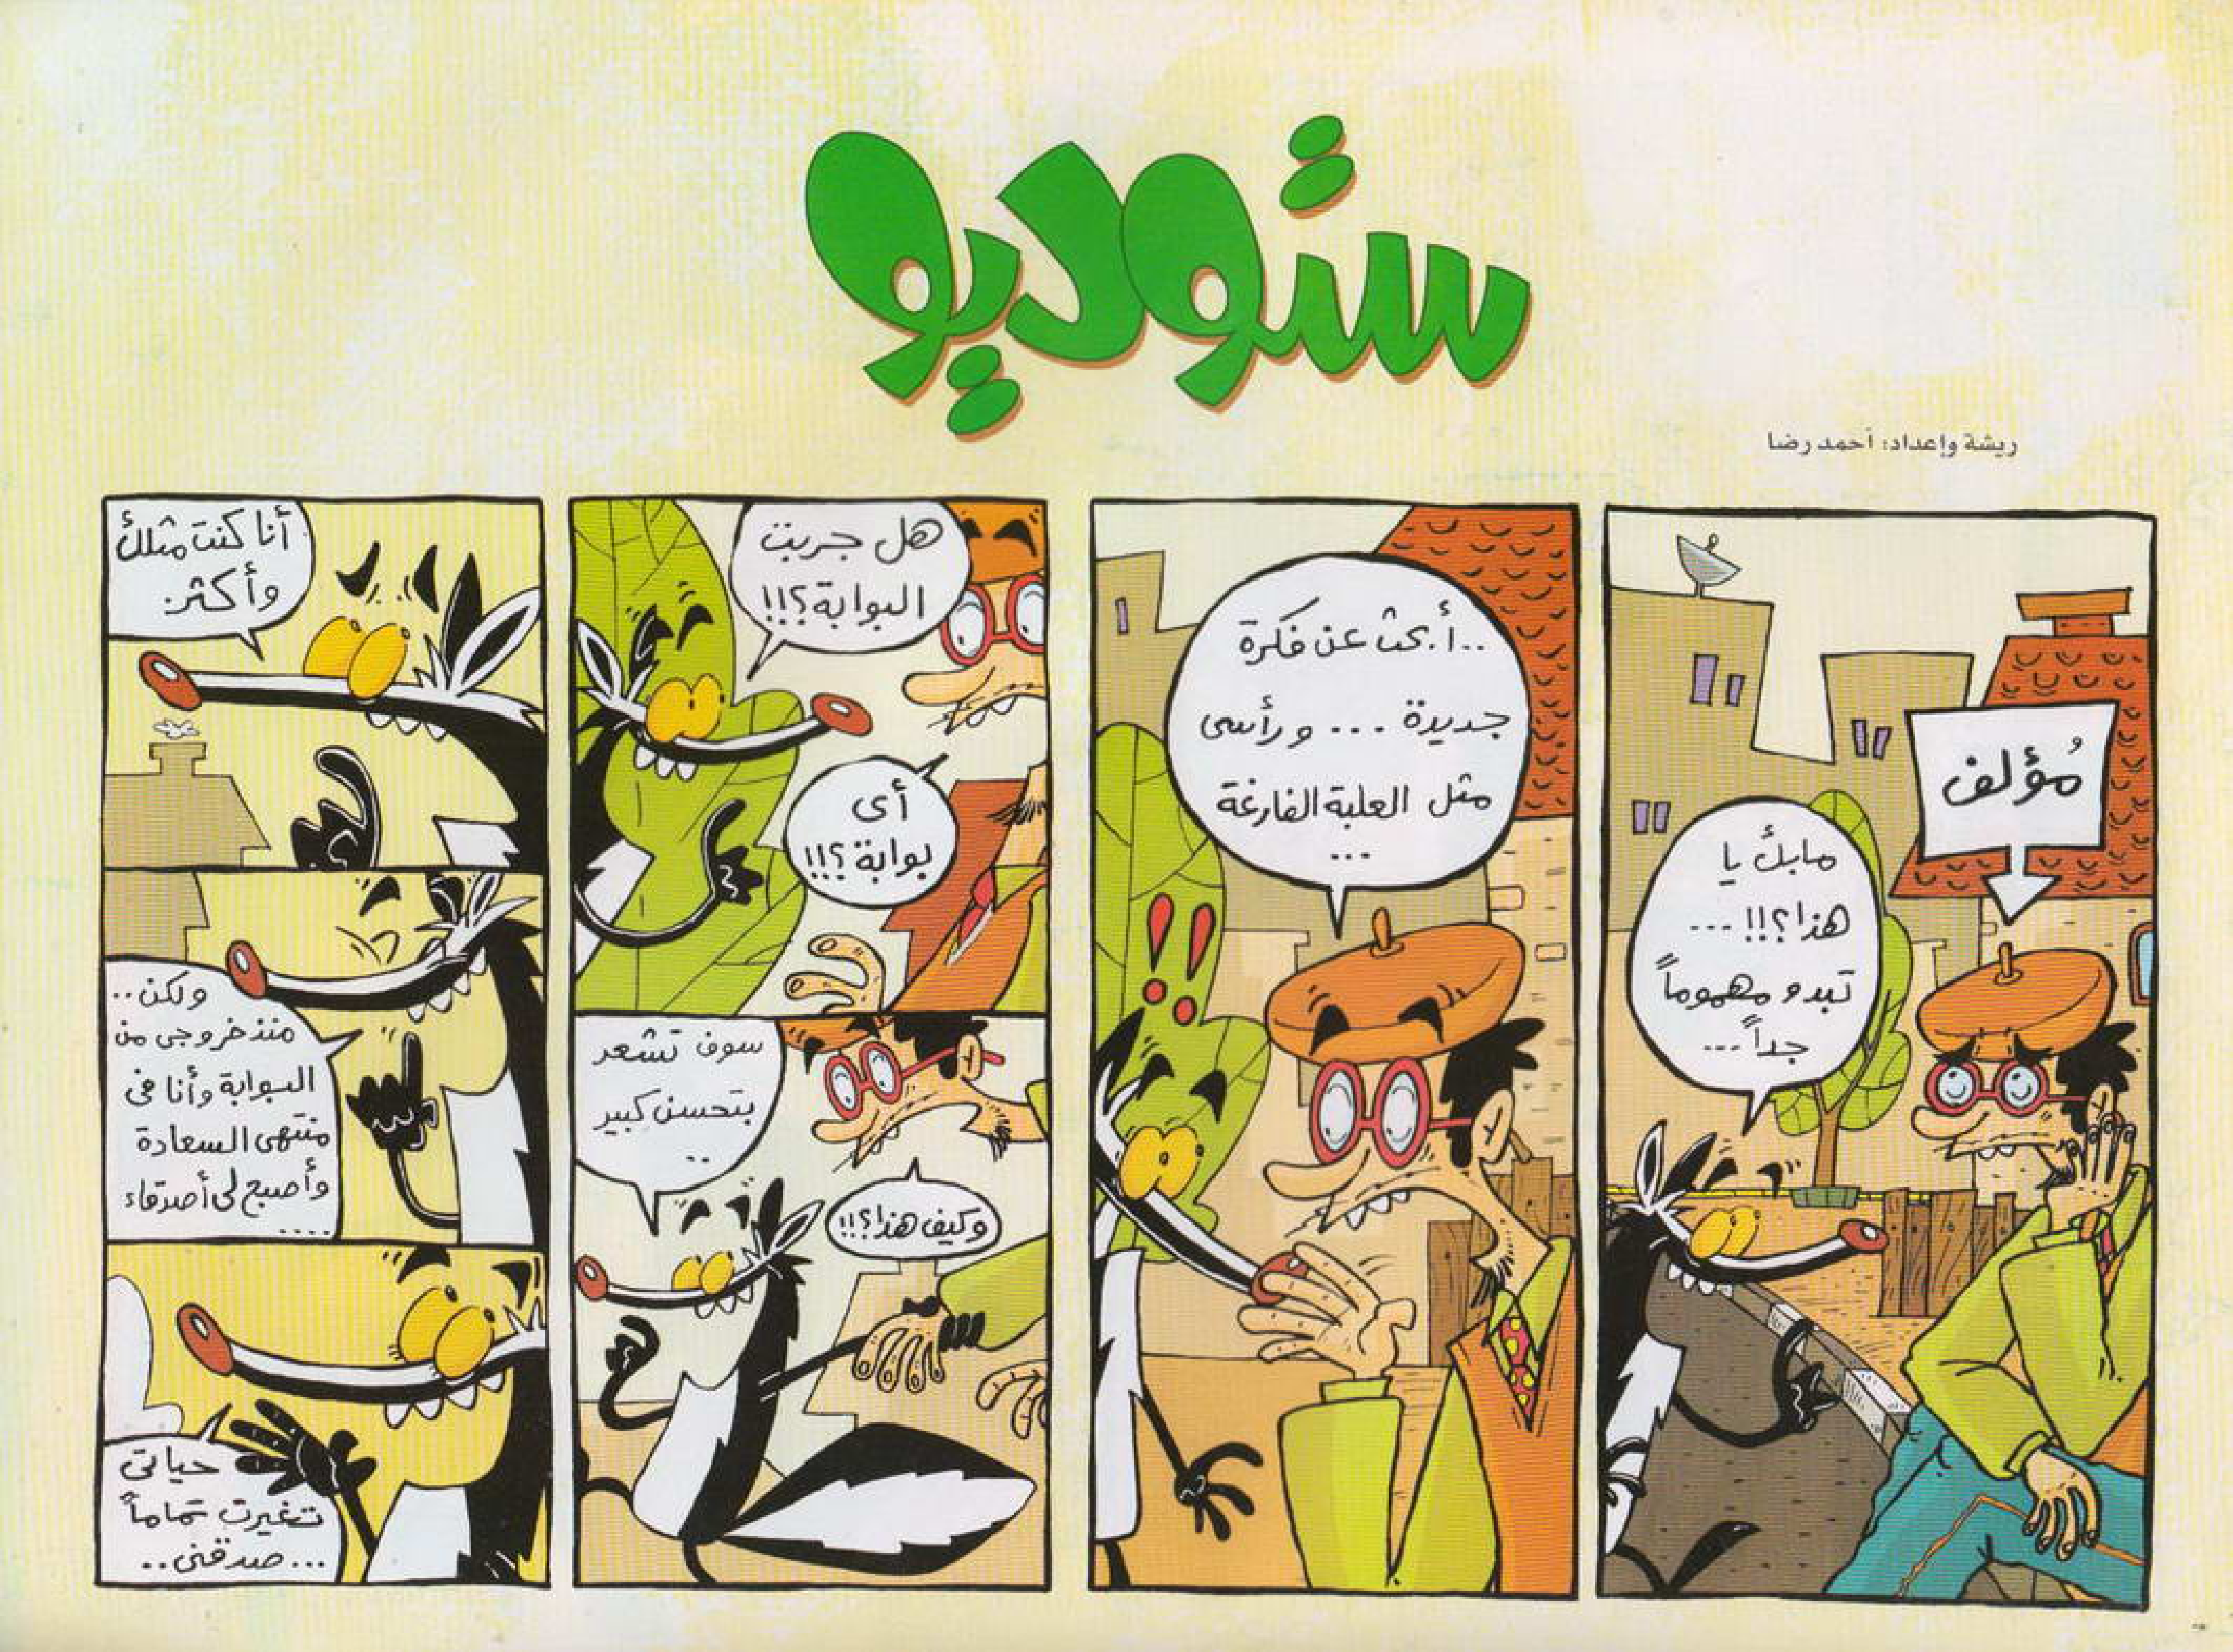 ستوديو
ريشة وإعداد: أحمد رضا
مُؤلف
مابكَ يا
هذا؟!! ...
تبدو مهموماً
جداً ...
..أبحث عن فكرة
جديدة ... ورأسى
مثل العلبة الفارغة
...
هل جربت
البوابة؟!!
أى
بوابة؟!!
سوف تشعر
بتحسن كبير
..
وكيف هذا؟!!
أنا كنت مثلكَ
وأكثر:
ولكن..
منذ خروجى من
البوابة وأنا فى
منتهى السعادة
وأصبح لى أصدقاء
....
حياتى
تغيرت تماماً
...صدقنى..